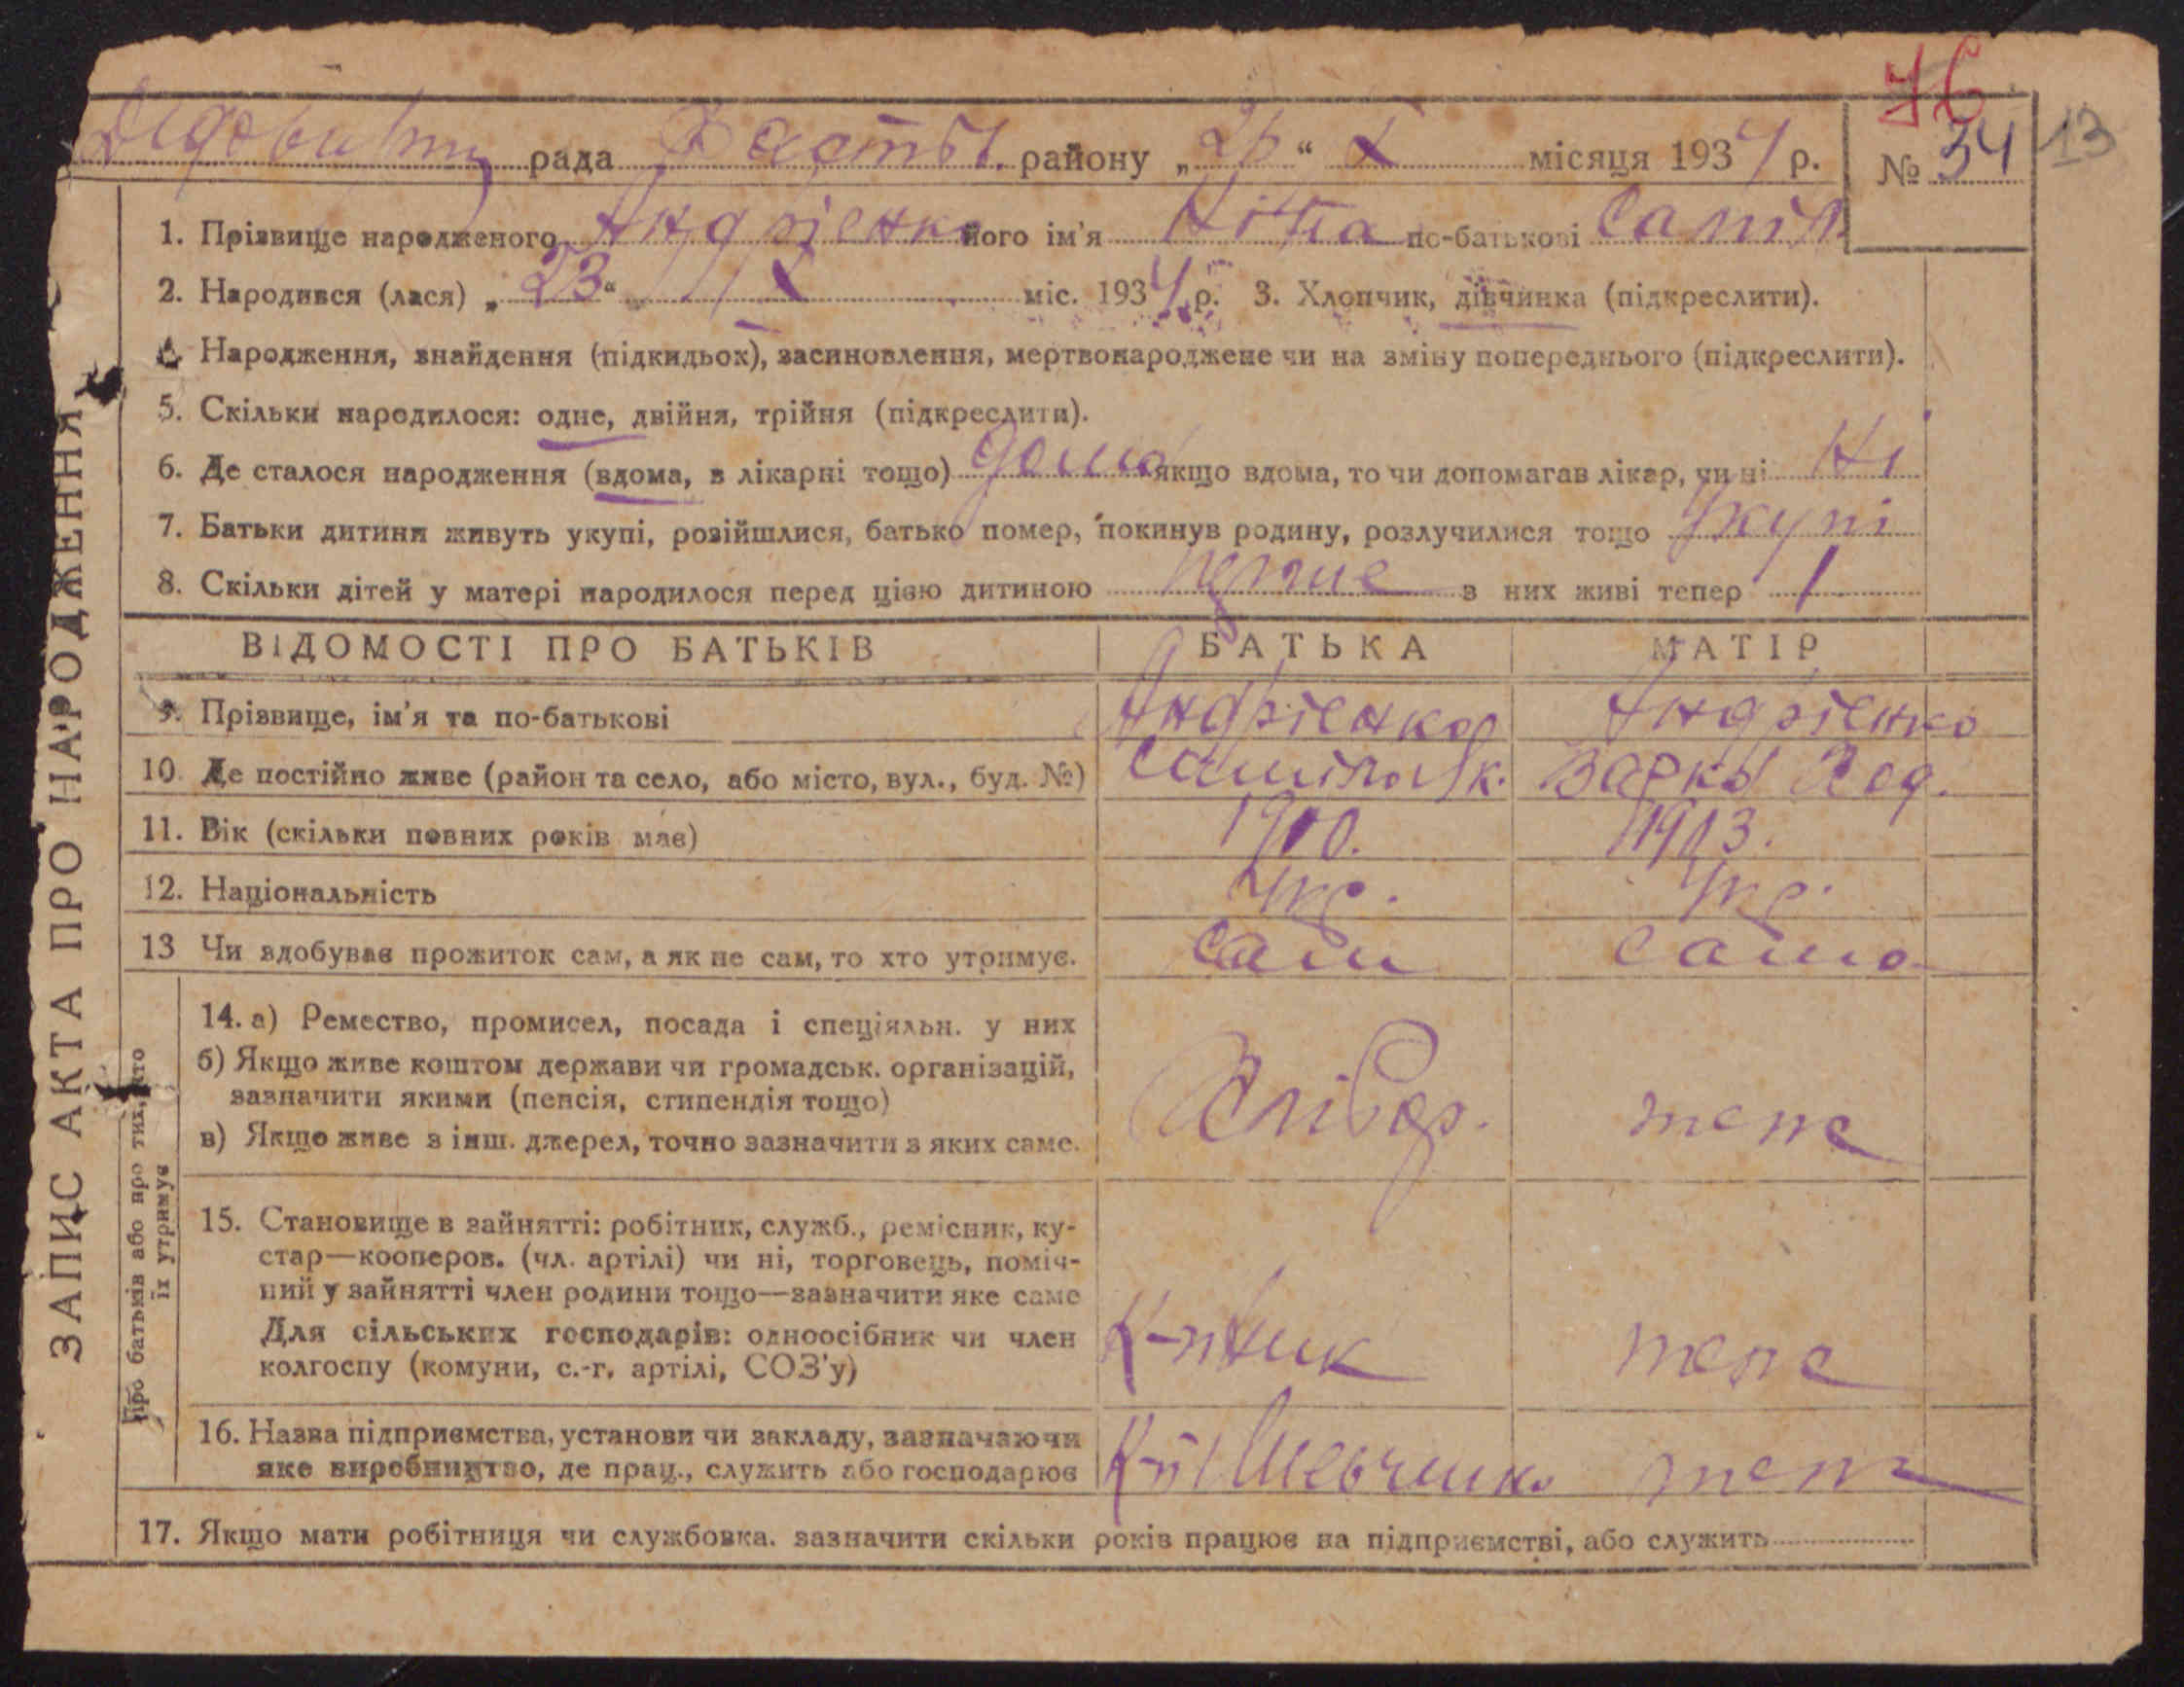 рада району „26“ X місяця 1934 р. № 34 13
1. Прізвище народженого Андрієнко його ім'я Ніна по-батькові
2. Народився (лася) „23“ X міс. 1934 р. 3. Хлопчик, дівчинка (підкреслити).
4. Народження, знайдення (підкидьок), засиновлення, мертвонароджене чи на зміну попереднього (підкреслити).
5. Скільки народилося: одне, двійня, трійня (підкреслити).
6. Де сталося народження (вдома, в лікарні тощо) дома якщо вдома, то чи допомагав лікар, чи ні Ні
7. Батьки дитини живуть укупі, розійшлися, батько помер, покинув родину, розлучилися тощо
8. Скільки дітей у матері народилося перед цією дитиною перше з них живі тепер 1
ВІДОМОСТІ ПРО БАТЬКІВ БАТЬКА МАТІР
9. Прізвище, ім'я та по-батькові Андрієнко Андрієнко
10. Де постійно живе (район та село, або місто, вул., буд. №)
11. Вік (скільки повних років має) 1910. 1913.
12. Національність Укр. Укр.
13 Чи здобуває прожиток сам, а як не сам, то хто утримує. сам сама
14. а) Ремество, промисел, посада і спеціяльн. у них
б) Якщо живе коштом держави чи громадськ. організацій,
зазначити якими (пенсія, стипендія тощо)
в) Якщо живе з інш. джерел, точно зазначити з яких саме.
Хлібор. теж
15. Становище в зайнятті: робітник, служб., ремісник, ку-
стар—кооперов. (чл. артілі) чи ні, торговець, поміч-
ний у зайнятті член родини тощо—зазначити яке саме
Для сільських господарів: одноосібник чи член
колгоспу (комуни, с.-г. артілі, СОЗ'у)
16. Назва підприємства, установи чи закладу, зазначаючи
яке виробництво, де прац., служить або господарює
17. Якщо мати робітниця чи службовка. зазначити скільки років працює на підприємстві, або служить
ЗАПИС АКТА ПРО НАРОДЖЕННЯ
Про батьків або про тих, хто
їх утримує